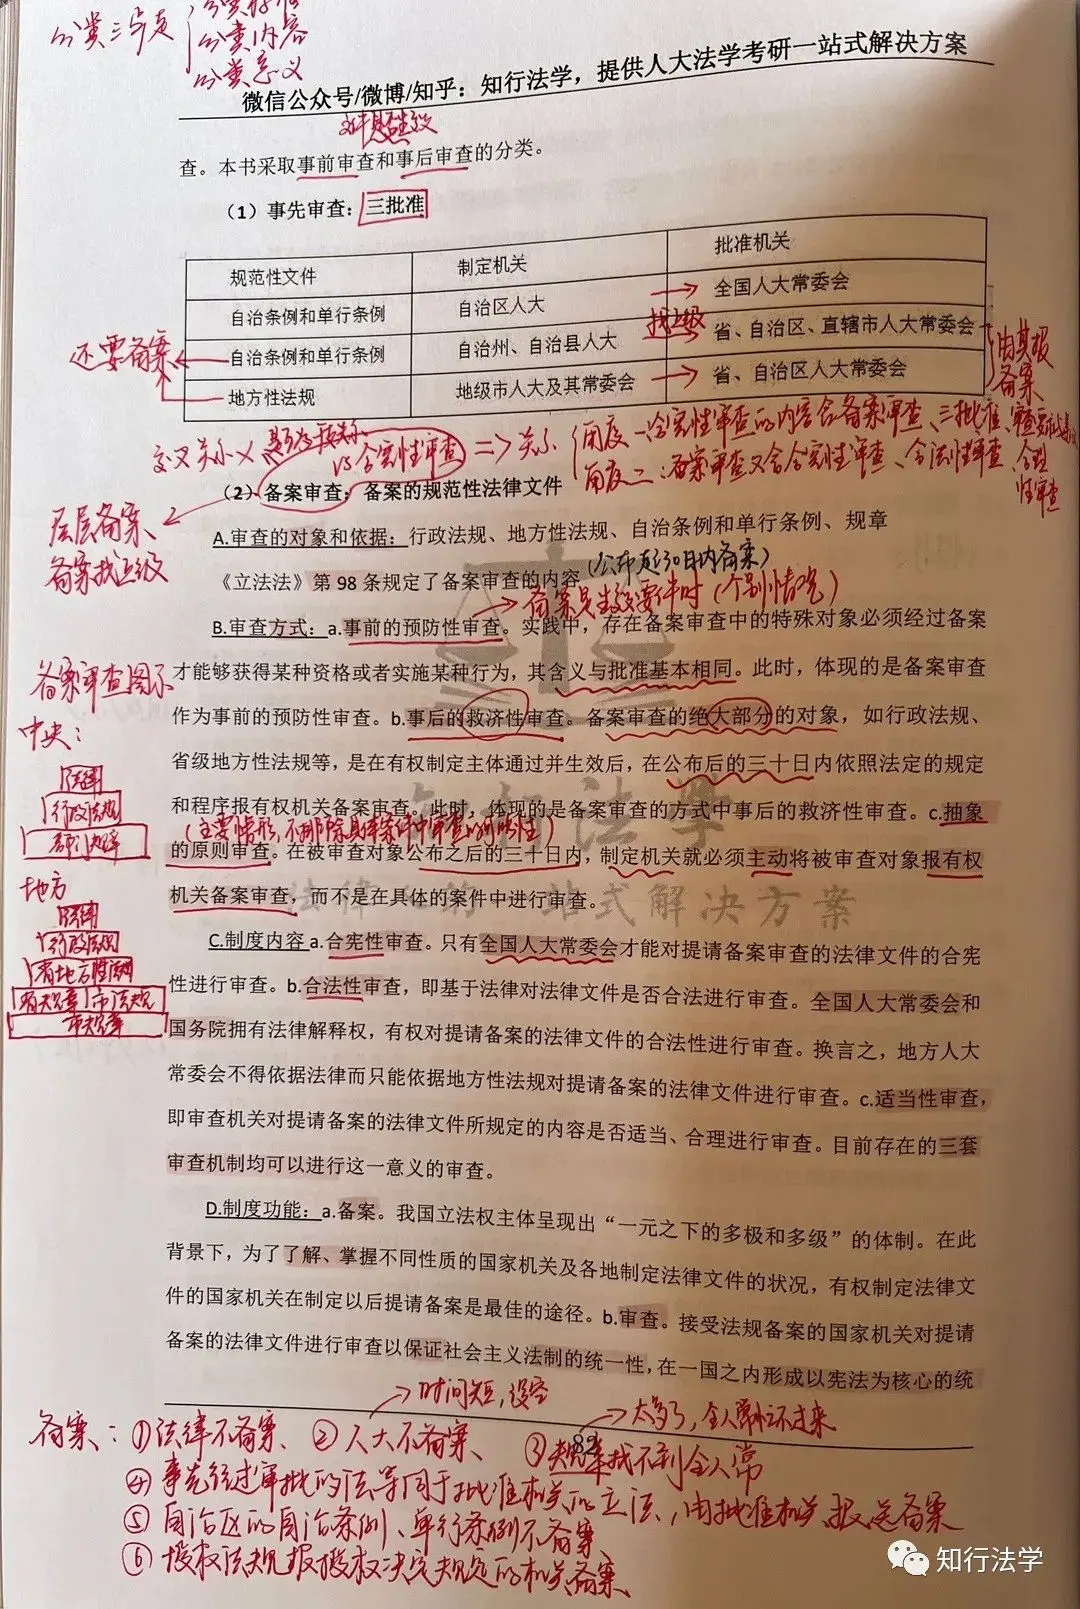 分类三步走
分类标准
分类内容
分类意义
微信公众号/微博/知乎：知行法学，提供人大法学考研一站式解决方案
文件是否生效
查。本书采取事前审查和事后审查的分类。
（1）事先审查：三批准
规范性文件 制定机关 批准机关
自治条例和单行条例 自治区人大 全国人大常委会
找上级
自治条例和单行条例 自治州、自治县人大 省、自治区、直辖市人大常委会
地方性法规 地级市人大及其常委会 省、自治区人大常委会
还要备案
由其报
备案
交叉关系
与合宪性审查 => 关系
角度一、合宪性审查的内容含备案审查、三批准、
角度二、备案审查又含合宪性审查、合法性审查、合理
性审查
（2）备案审查：备案的规范性法律文件
层层备案、
备案找上级
A.审查的对象和依据：行政法规、地方性法规、自治条例和单行条例、规章
（公布后30日内备案）
《立法法》第 98 条规定了备案审查的内容
备案是生效要件时（个别情况）
B.审查方式：a.事前的预防性审查。实践中，存在备案审查中的特殊对象必须经过备案
才能够获得某种资格或者实施某种行为，其含义与批准基本相同。此时，体现的是备案审查
作为事前的预防性审查。b.事后的救济性审查。备案审查的绝大部分的对象，如行政法规、
省级地方性法规等，是在有权制定主体通过并生效后，在公布后的三十日内依照法定的规定
和程序报有权机关备案审查。此时，体现的是备案审查的方式中事后的救济性审查。c.抽象
（主要情形，不排除具体案件中审查的可能性）
的原则审查。在被审查对象公布之后的三十日内，制定机关就必须主动将被审查对象报有权
机关备案审查，而不是在具体的案件中进行审查。
备案审查图示
中央：
法律
行政法规
部门规章
地方
法律
行政法规
省地方性法规
省规章 市法规
市规章
C.制度内容 a.合宪性审查。只有全国人大常委会才能对提请备案审查的法律文件的合宪
性进行审查。b.合法性审查，即基于法律对法律文件是否合法进行审查。全国人大常委会和
国务院拥有法律解释权，有权对提请备案的法律文件的合法性进行审查。换言之，地方人大
常委会不得依据法律而只能依据地方性法规对提请备案的法律文件进行审查。c.适当性审查，
即审查机关对提请备案的法律文件所规定的内容是否适当、合理进行审查。目前存在的三套
审查机制均可以进行这一意义的审查。
D.制度功能：a.备案。我国立法权主体呈现出“一元之下的多极和多级”的体制。在此
背景下，为了了解、掌握不同性质的国家机关及各地制定法律文件的状况，有权制定法律文
件的国家机关在制定以后提请备案是最佳的途径。b.审查。接受法规备案的国家机关对提请
备案的法律文件进行审查以保证社会主义法制的统一性，在一国之内形成以宪法为核心的统
82
时间短，没空
太多了，全人常忙不过来
备案：①法律不备案、②人大不备案、③规章找不到全人常
④事先经过审批的法等同于批准机关的立法，由批准机关报送备案
⑤自治区的自治条例、单行条例不备案、
⑥授权法规报授权决定规定的机关备案、
知行法学